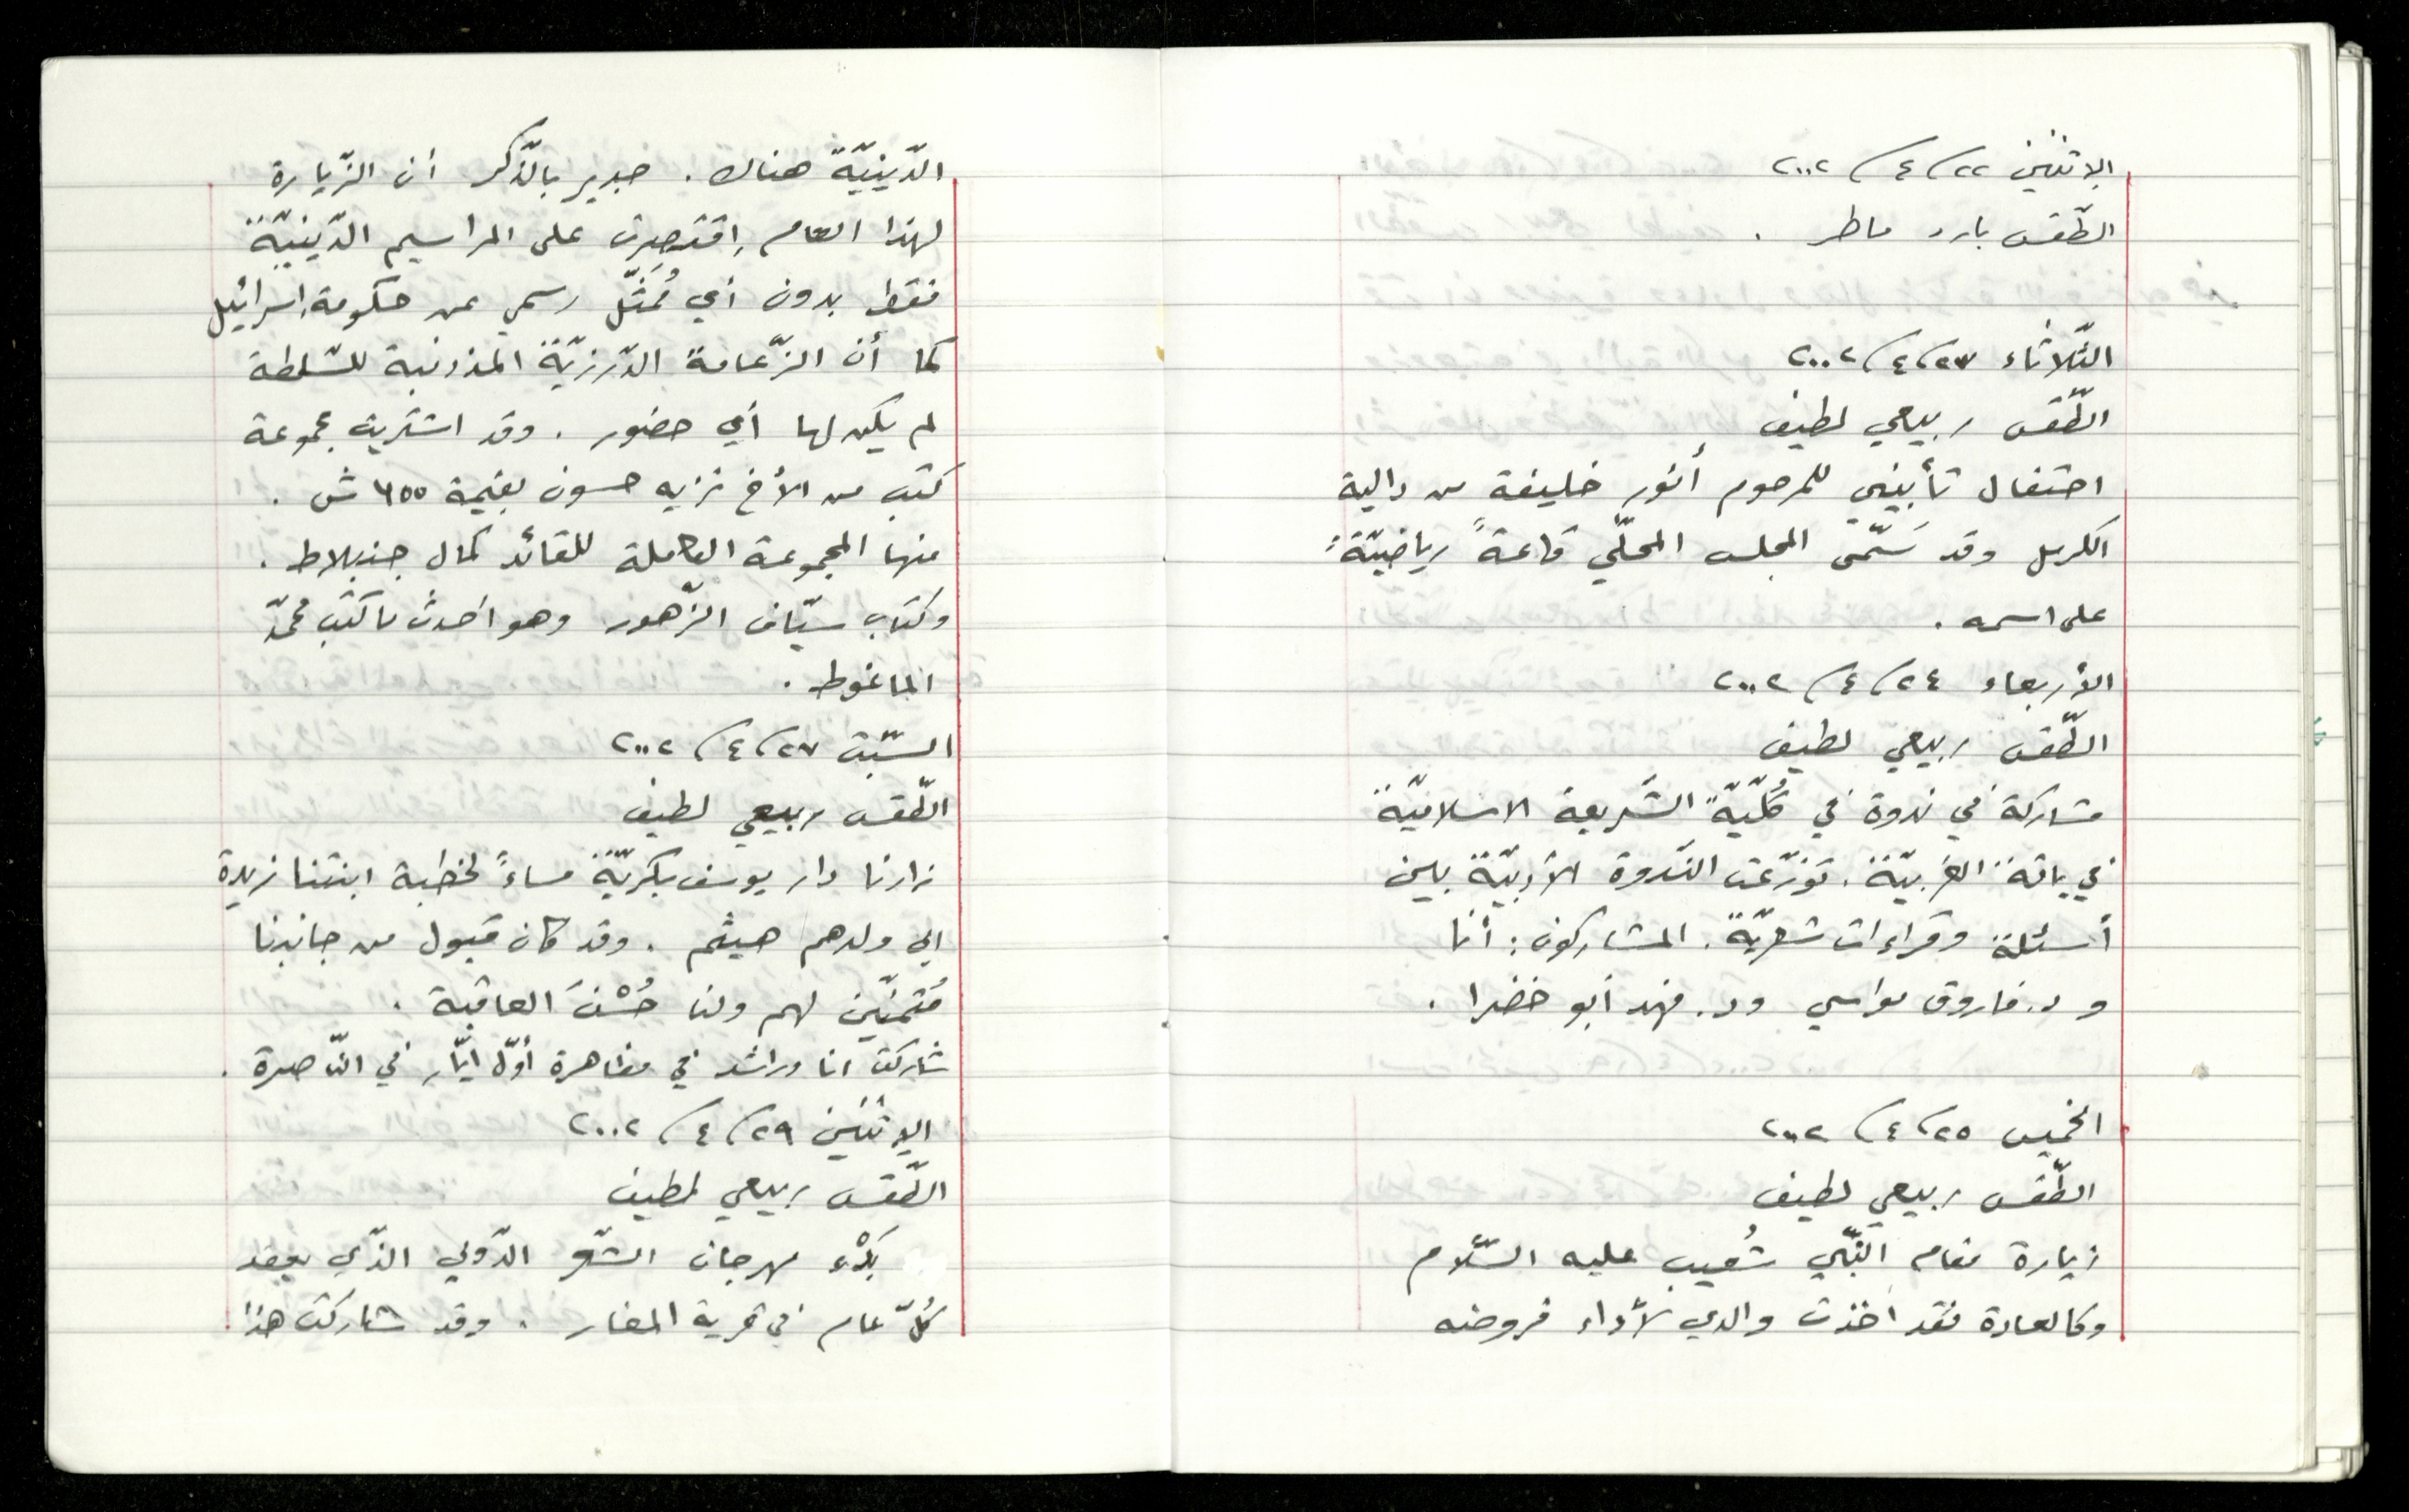 الاثنين ٢٢/٤/٢٠٠٢
الطّقس بارد ماطر .
الثّلاثاء ٢٣/٤/٢٠٠٢
الطّقس ربيعي لطيف
احتفال تأبيني للمرحوم أنور خليفة من دالية
الكرمل وقد سَمّى المجلس المحلّي قاعةً رياضيّةً
على اسمه .
الأربعاء ٢٤/٤/٢٠٠٢
الطّقس ربيعي لطيف
مشاركة في ندوة في كُلّيّة الشّريعة الاسلاميّة
في باقة الغربيّة . توزّعت النّدوة الأدبيّة بين
أسئلة وقراءات شعريّة . المشاركون : أنا
و د. فاروق مواسي ود. فهد أبو خضرا .
الخميس ٢٥/٤/٢٠٠٢
الطّقس ربيعي لطيف
زيارة مقام النّبّي شُعيب عليه السّلام
وكالعادة فقد أخذت والدي لأداء فروضه
الدّينيّة هناك . جدير بالذّكر أن الزّيارة
لهذا العام اِقتصرت على المراسيم الدّينيّة
فقط بدون أي مُمَثّل رسمي عن حكومة إسرائيل
كما أن الزّعامة الدّرزيّة المذدنبة للسّلطة
لم يكن لها أي حضور . وقد اشتريت مجموعة
كتب من الأخ نزيه حسون بقيمة ٦٥٥ ش .
منها المجموعة الكاملة للقائد كمال جنبلاط .
وكتاب سيّاف الزّهور وهو أحدث ما كتب محمّد
الماغوط .
السّبت ٢٧/٤/٢٠٠٢
الطّقس ربيعي لطيف
زارنا دار يوسف بكريّة مساءً لخطبة ابنتنا زبيدة
الى ولدهم هيثم . وقد كان قبول من جانبنا
مُتمنّين لهم ولنا حُسْنَ العاقبة .
شاركت انا وراشد في مظاهرة أوّل أيّار في النّاصرة .
الإثنين ٢٩/٤/٢٠٠٢
الطّقس ربيعي لطيف
بَدْء مهرجان الشّعر الدّولي الذّي يعقد
كُلّ عام في قرية المغار . وقد شاركت هذا